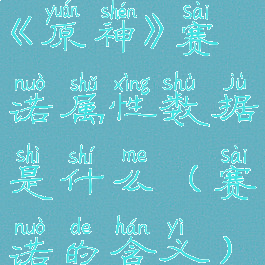 yuán shén sài
《原神》赛
nuò shǔ, xìng shù jù
诺属性数据
shì shí me sài
是什么（赛
nuò de hán yì
诺的含义）